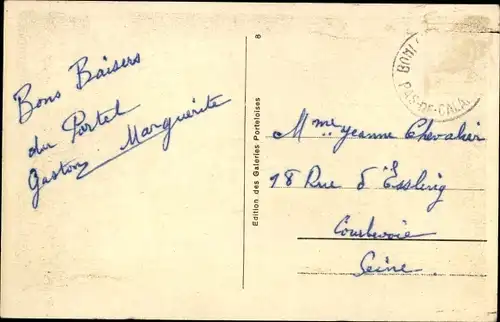 Bons Baisers
du Portel
Gaston Marguerite
Edition des Galeries Porteloises
8
PAS-DE-CALAIS
Mme Jeanne Chevalier
18 Rue d'Essling
Courbevoie
Seine.